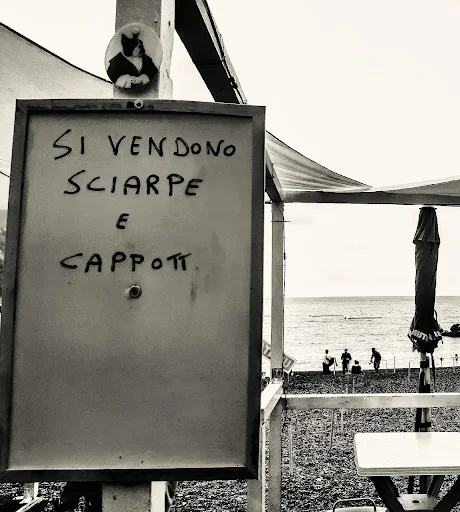 SI VENDONO
SCIARPE
E
CAPPOTTI